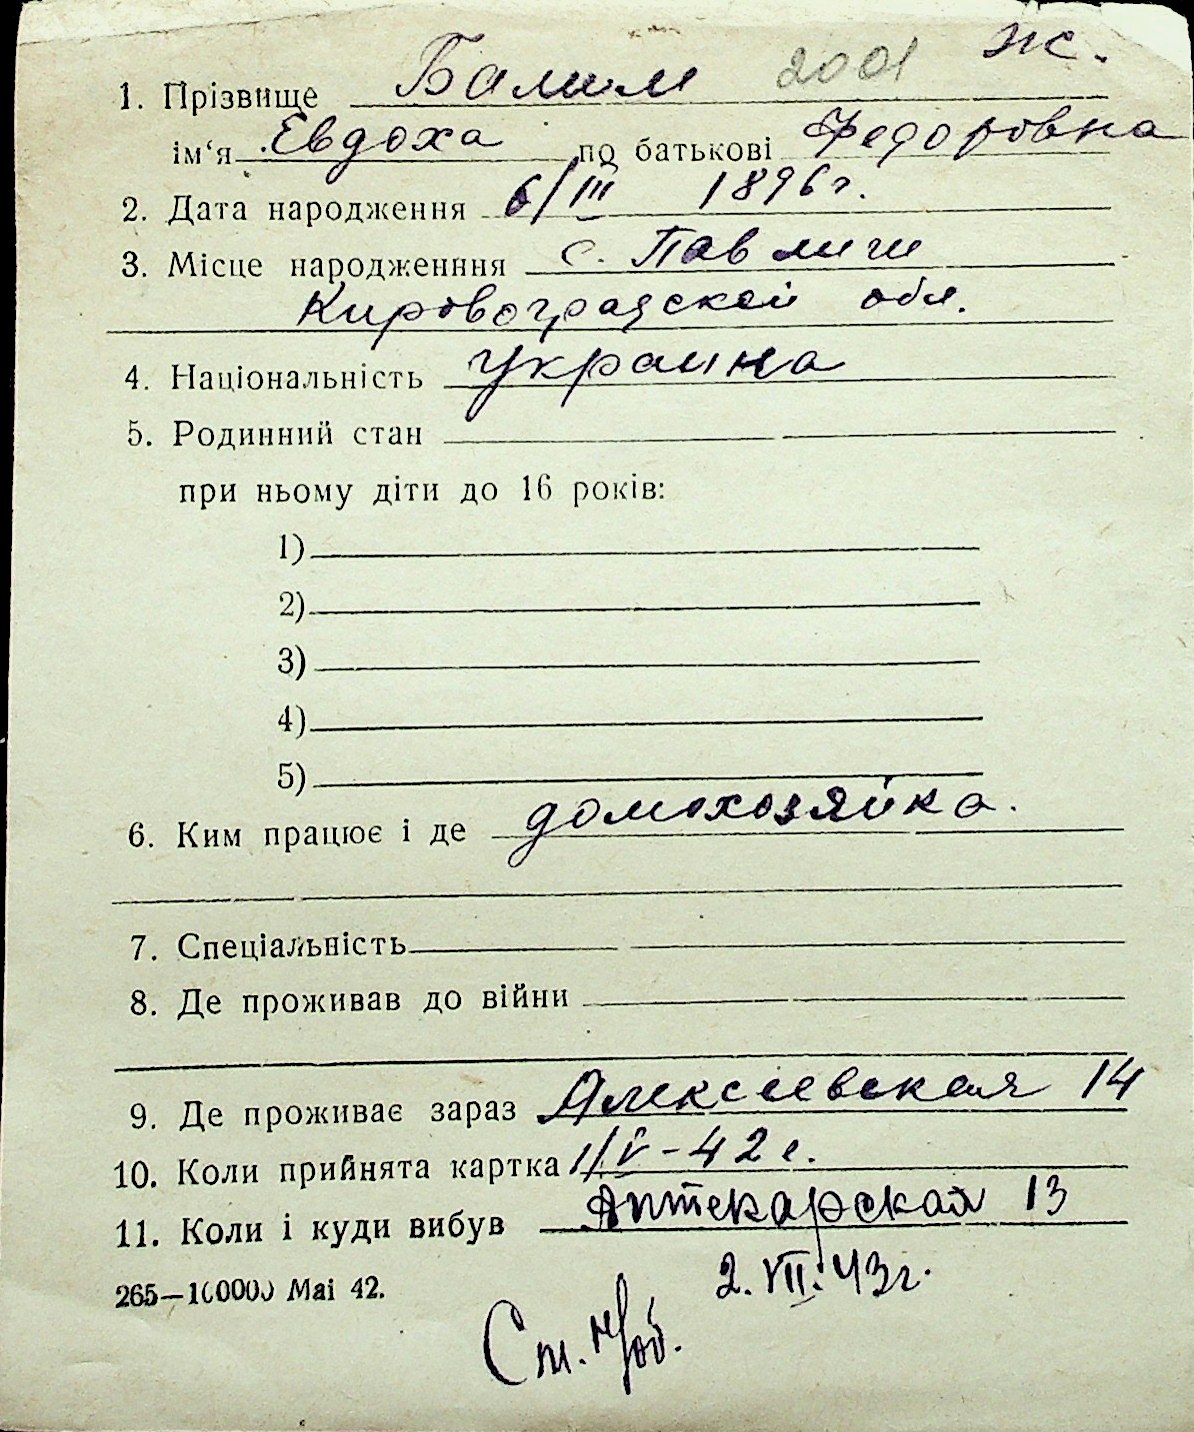 2001 ж.
1. Прізвище Балим
ім‘я Евдоха по батькові Федоровна
2. Дата народження 6/III 1896 г.
3. Місце народженння с. Павлиги
Кировоградской обл.
4. Національність украина
5. Родинний стан
при ньому діти до 16 років:
1)
2)
3)
4)
5)
6. Ким працює і де домохозяйка.
7. Спеціальність
8. Де проживав до війни
9. Де проживає зараз Алексеевская 14
10. Коли прийнята картка 1/V-42 г.
11. Коли і куди вибув Аптекарская 13
265—100000 Mai 42. 2. VII. 43 г.
Ст.